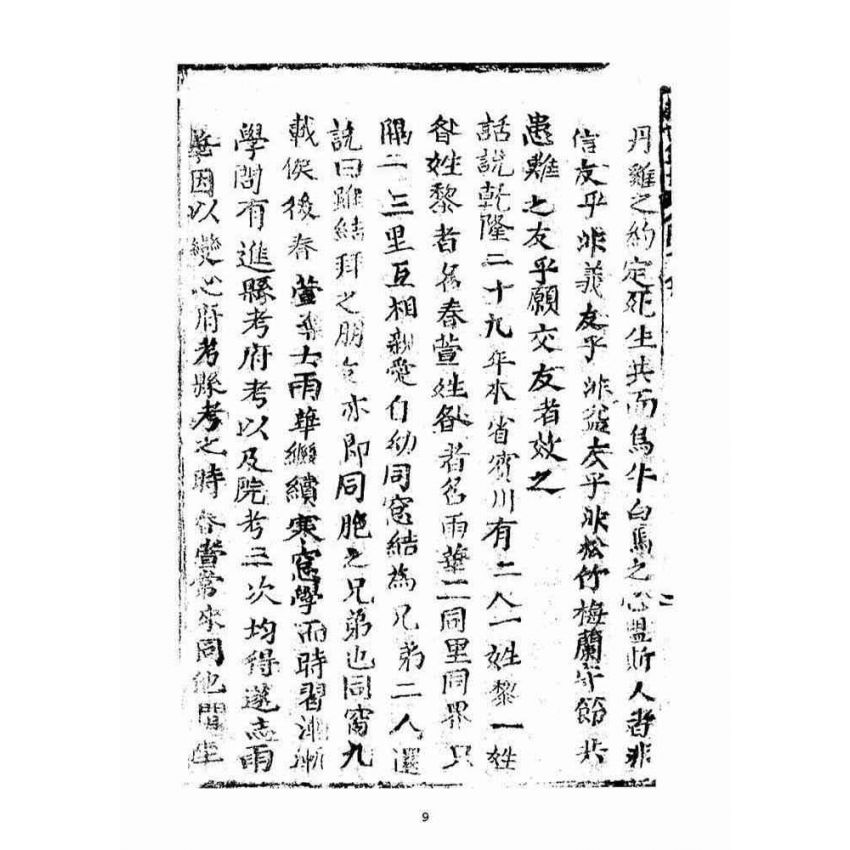 丹雞之約定死生共而烏牛白馬之心盟斯人者非
信友乎非義友乎非益友乎非松竹梅蘭守節共
患難之友乎願交友者效之
話說乾隆二十九年本省賓川有二人一姓黎一姓
昝姓黎者名春萱姓昝者名雨華二同里同界只
隔二三里互相親愛自幼同窓結為兄弟二人還
說曰雖結拜之朋友亦即同胞之兄弟也同窗九
載俟後春萱與士雨華繼續寒窓學而時習漸漸
學問有進縣考府考以及院考三次均得遂志雨
華因以變心府考縣考之時春萱常來同他閒坐
9